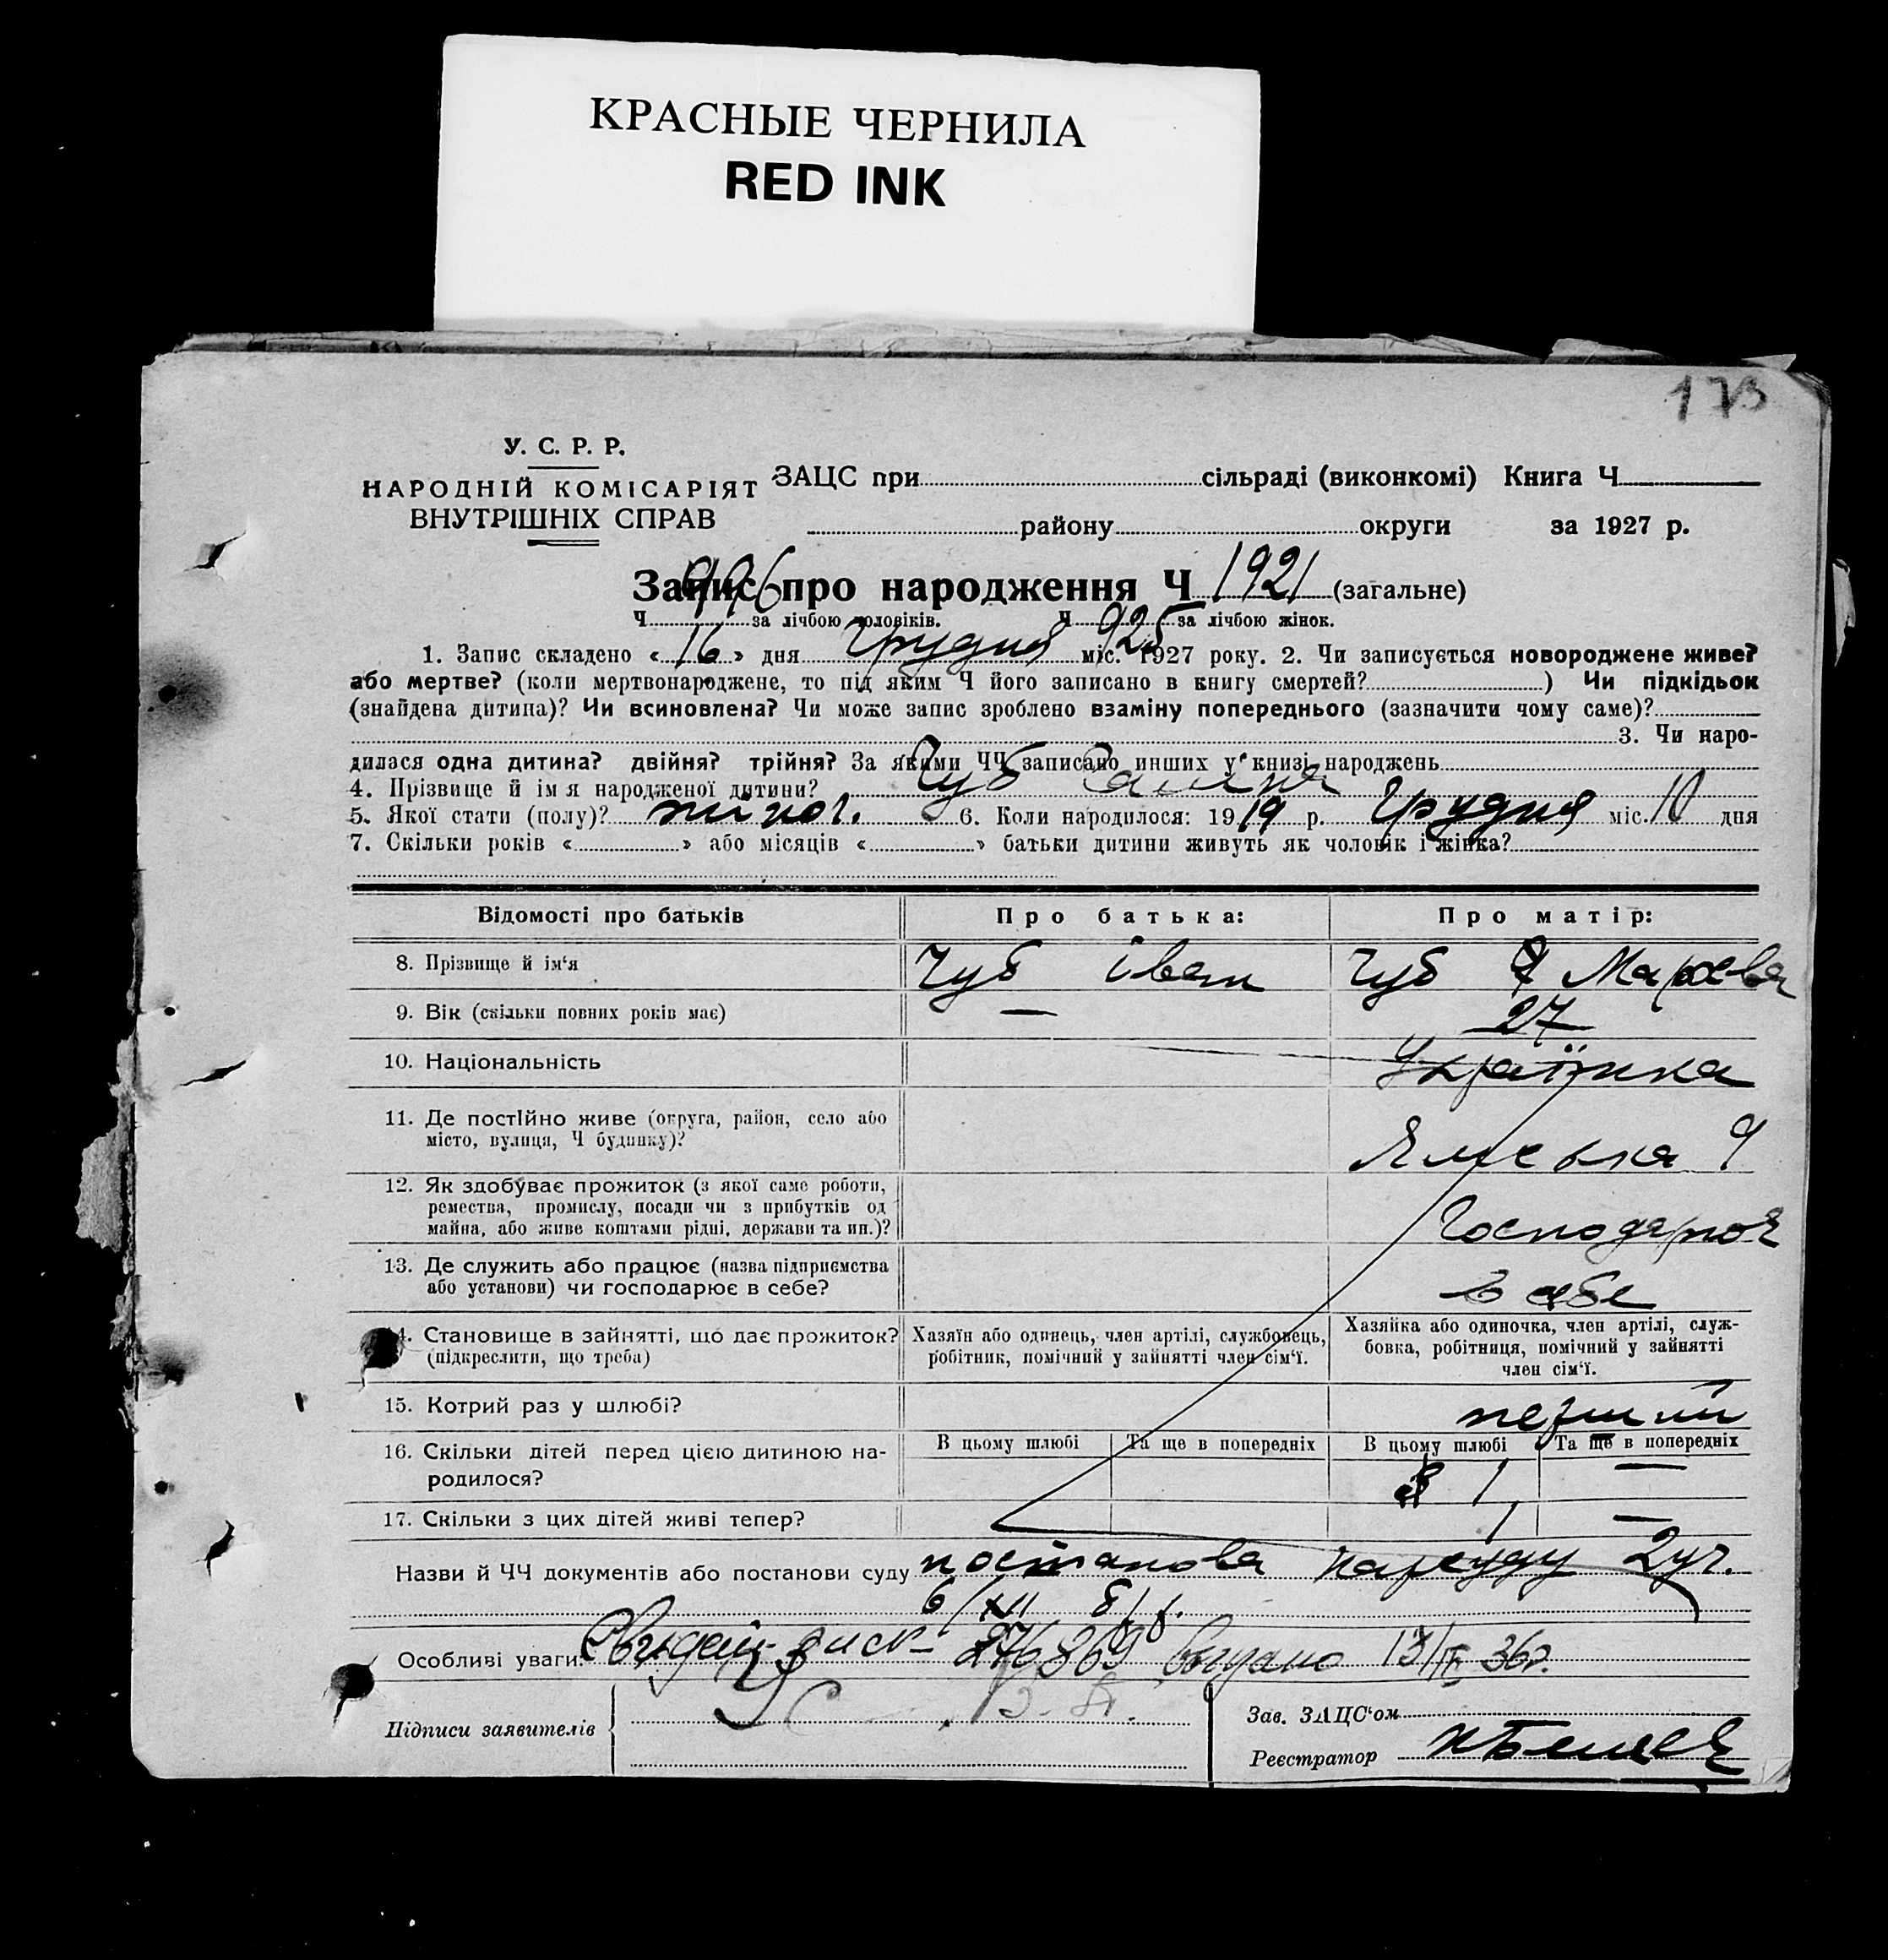 КРАСНЫЕ ЧЕРНИЛА
RED INK
173
У. С. Р. Р.
НАРОДНІЙ КОМІСАРІЯТ
ВНУТРІШНІХ СПРАВ
ЗАЦС при сільраді (виконкомі) Книга Ч
району округи за 1927 р.
Запис про народження Ч 1921 (загальне)
Ч 996 за лічбою чоловіків. Ч 925 за лічбою жінок.
1. Запис складено « 16 » дня Грудня міс. 1927 року. 2. Чи записується новороджене живе?
або мертве? (коли мертвонароджене, то під яким Ч його записано в книгу смертей? ) Чи підкідьок
(знайдена дитина)? Чи всиновлена? Чи може запис зроблено взаміну попереднього (зазначити чому саме)?
3. Чи наро-
дилася одна дитина? двійня? трійня? За якими ЧЧ записано инших у книзі народжень
4. Прізвище й ім я народженої дитини? Чуб Галина
5. Якої стати (полу)? жіноч. 6. Коли народилося: 1919 р. Грудня міс. 10 дня
7. Скільки років « » або місяців « » батьки дитини живуть як чоловік і жінка?
Відомості про батьків Про батька: Про матір:
8. Прізвище й ім‘я Чуб Іван Чуб Марфа
9. Вік (скільки повних років має) — 27
10. Національність Українка
11. Де постійно живе (округа, район, село або
місто, вулиця, Ч будинку)? Ямська 9
12. Як здобуває прожиток (з якої саме роботи,
ремества, промислу, посади чи з прибутків од
майна, або живе коштами рідні, держави та ин.)? Господарює
13. Де служить або працює (назва підприємства
або установи) чи господарює в себе? в себе
14. Становище в зайнятті, що дає прожиток?
(підкреслити, що треба)
Хазяїн або одинець, член артілі, службовець,
робітник, помічний у зайнятті член сім‘ї.
Хазяйка або одиночка, член артілі, служ-
бовка, робітниця, помічний у зайнятті
член сім‘ї.
15. Котрий раз у шлюбі? перший
16. Скільки дітей перед цією дитиною на-
родилося?
В цьому шлюбі Та ще в попередніх В цьому шлюбі Та ще в попередніх
1 —
17. Скільки з цих дітей живі тепер? 1 —
Назви й ЧЧ документів або постанови суду постанова нарсуду 2 уч.
6/XII
Особливі уваги: 276869 видано 36р.
Підписи заявителів
Зав. ЗАЦС‘ом
Реєстратор